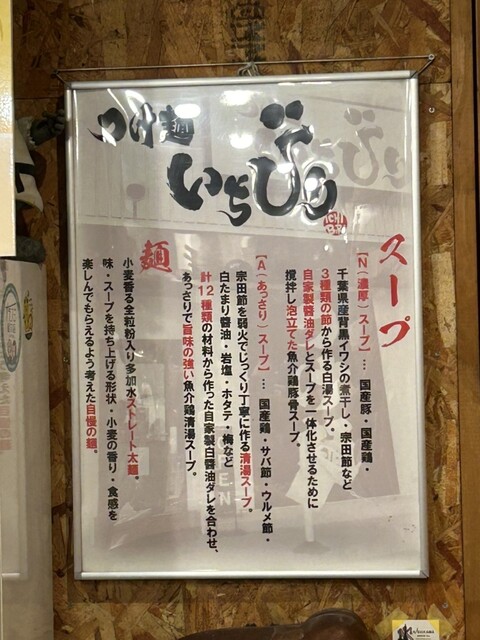 つけ麺
いちびり
ICHI
スープ
【N（濃厚）スープ】… 国産豚・国産鶏・
千葉県産背黒イワシの煮干し・宗田節など
3種類の節から作る白湯スープ。
自家製醤油ダレとスープを一体化させるために
撹拌し泡立てた魚介鶏豚骨スープ。
【A（あっさり）スープ】… 国産鶏・サバ節・ウルメ節・
宗田節を弱火でじっくり丁寧に作る清湯スープ。
白たまり醤油・岩塩・ホタテ・梅など
計12種類の材料から作った自家製白醤油ダレを合わせ、
あっさりで旨味の強い魚介鶏清湯スープ。
麺
小麦香る全粒粉入り多加水ストレート太麺。
味・スープを持ち上げる形状・小麦の香り・食感を
楽しんでもらえるよう考えた自慢の麺。